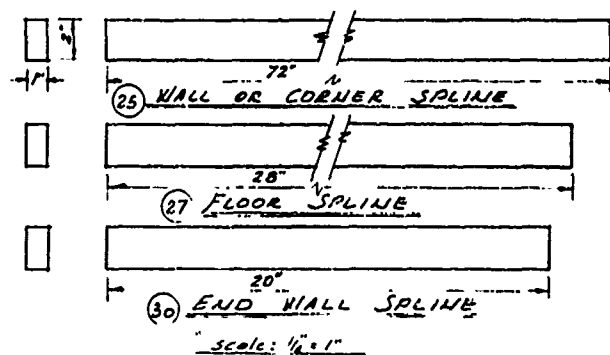 2"
1"
72"
25 WALL OR CORNER SPLINE
28"
27 FLOOR SPLINE
20"
30 END WALL SPLINE
scale: = 1"